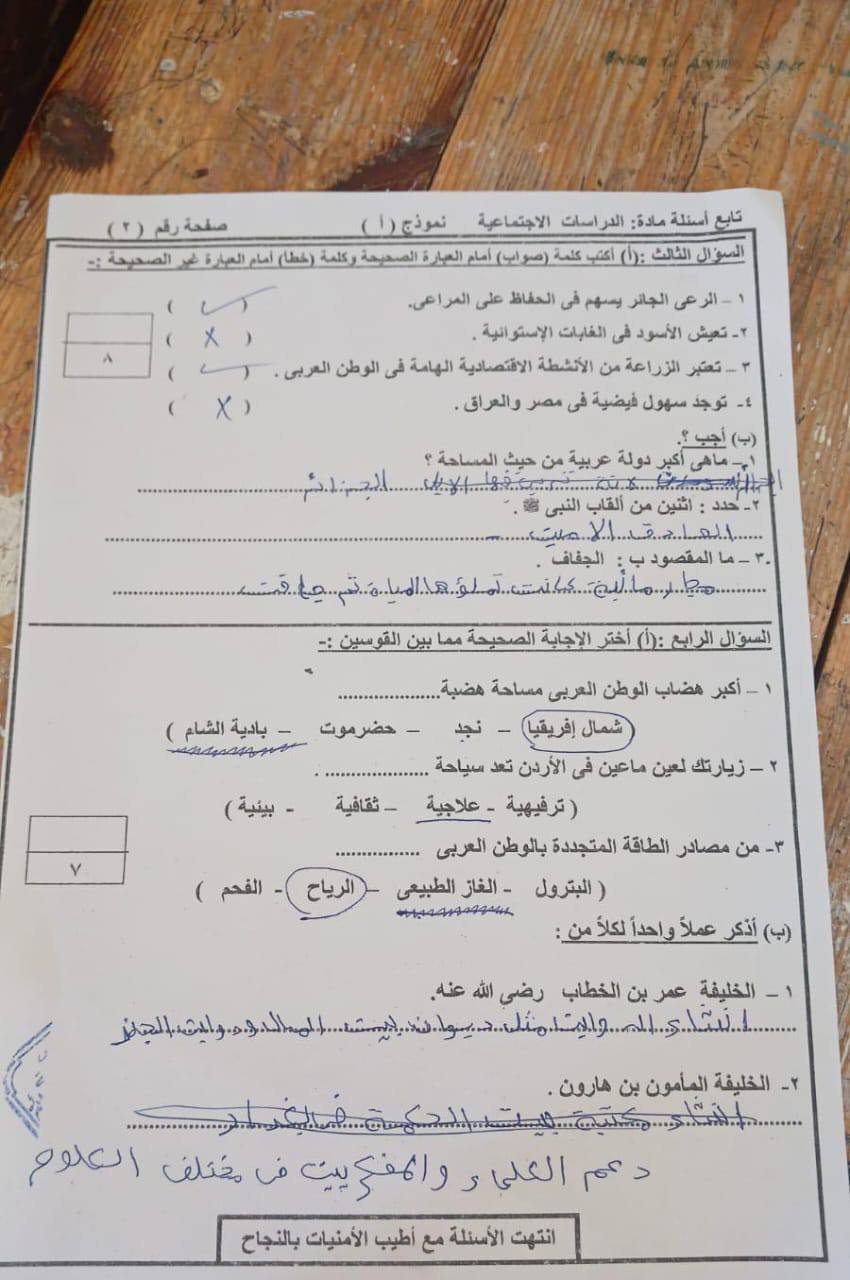 تابع أسئلة مادة: الدراسات الاجتماعية نموذج (أ) صفحة رقم (٢)
السؤال الثالث :(أ) أكتب كلمة (صواب) أمام العبارة الصحيحة وكلمة (خطأ) أمام العبارة غير الصحيحة :-
١ – الرعى الجائر يسهم فى الحفاظ على المراعى. ( ✓ )
٢- تعيش الأسود فى الغابات الإستوائية . ( X )
٣ – تعتبر الزراعة من الأنشطة الاقتصادية الهامة فى الوطن العربى . ( ✓ )
٨
٤- توجد سهول فيضية فى مصر والعراق . ( X )
(ب) أجب ؟.
١ – ماهى أكبر دولة عربية من حيث المساحة ؟
الجزائر
٢- حدد : اثنين من ألقاب النبى ﷺ .
الصادق الامين
٣ – ما المقصود ب : الجفاف .
كانت تملؤها المياة ثم
السؤال الرابع :(أ) أختر الإجابة الصحيحة مما بين القوسين :-
١ – أكبر هضاب الوطن العربى مساحة هضبة....................
( شمال إفريقيا – نجد – حضرموت – بادية الشام )
٢ – زيارتك لعين ماعين فى الأردن تعد سياحة .................... .
( ترفيهية - علاجية – ثقافية - بيئية )
٣- من مصادر الطاقة المتجددة بالوطن العربى ................
٧
( البترول - الغاز الطبيعى – الرياح - الفحم )
(ب) أذكر عملاً واحداً لكلاً من :
١ – الخليفة عمر بن الخطاب رضى الله عنه.
انشاء مثل ديوان بيت المال
٢- الخليفة المأمون بن هارون .
انشاء مكتبة بيت الحكمة
دعم العلماء والمفكريين فى مختلف العلوم
انتهت الأسئلة مع أطيب الأمنيات بالنجاح